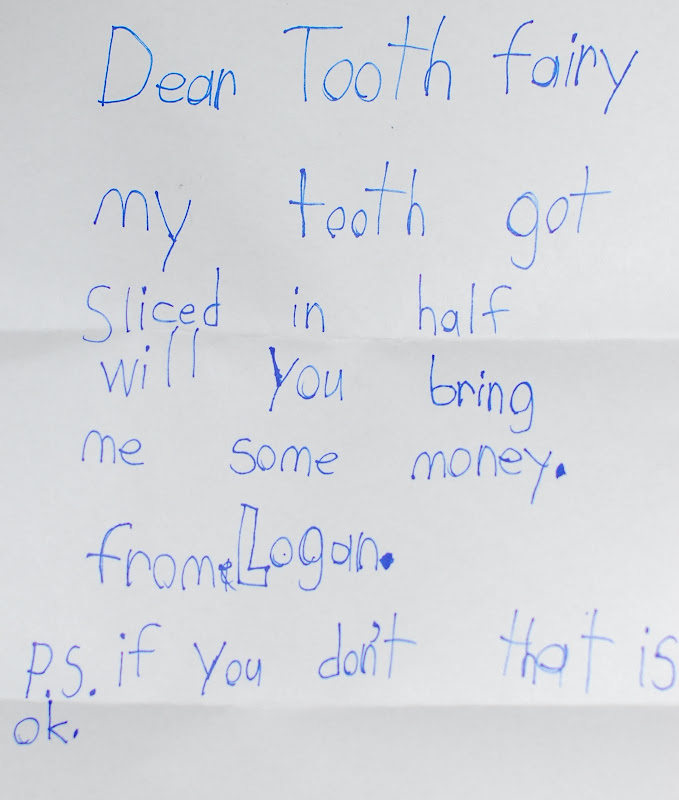 Dear Tooth fairy
my tooth got
Sliced in half
will you bring
me some money.
from Logan.
P.S. if you don't that is
ok.